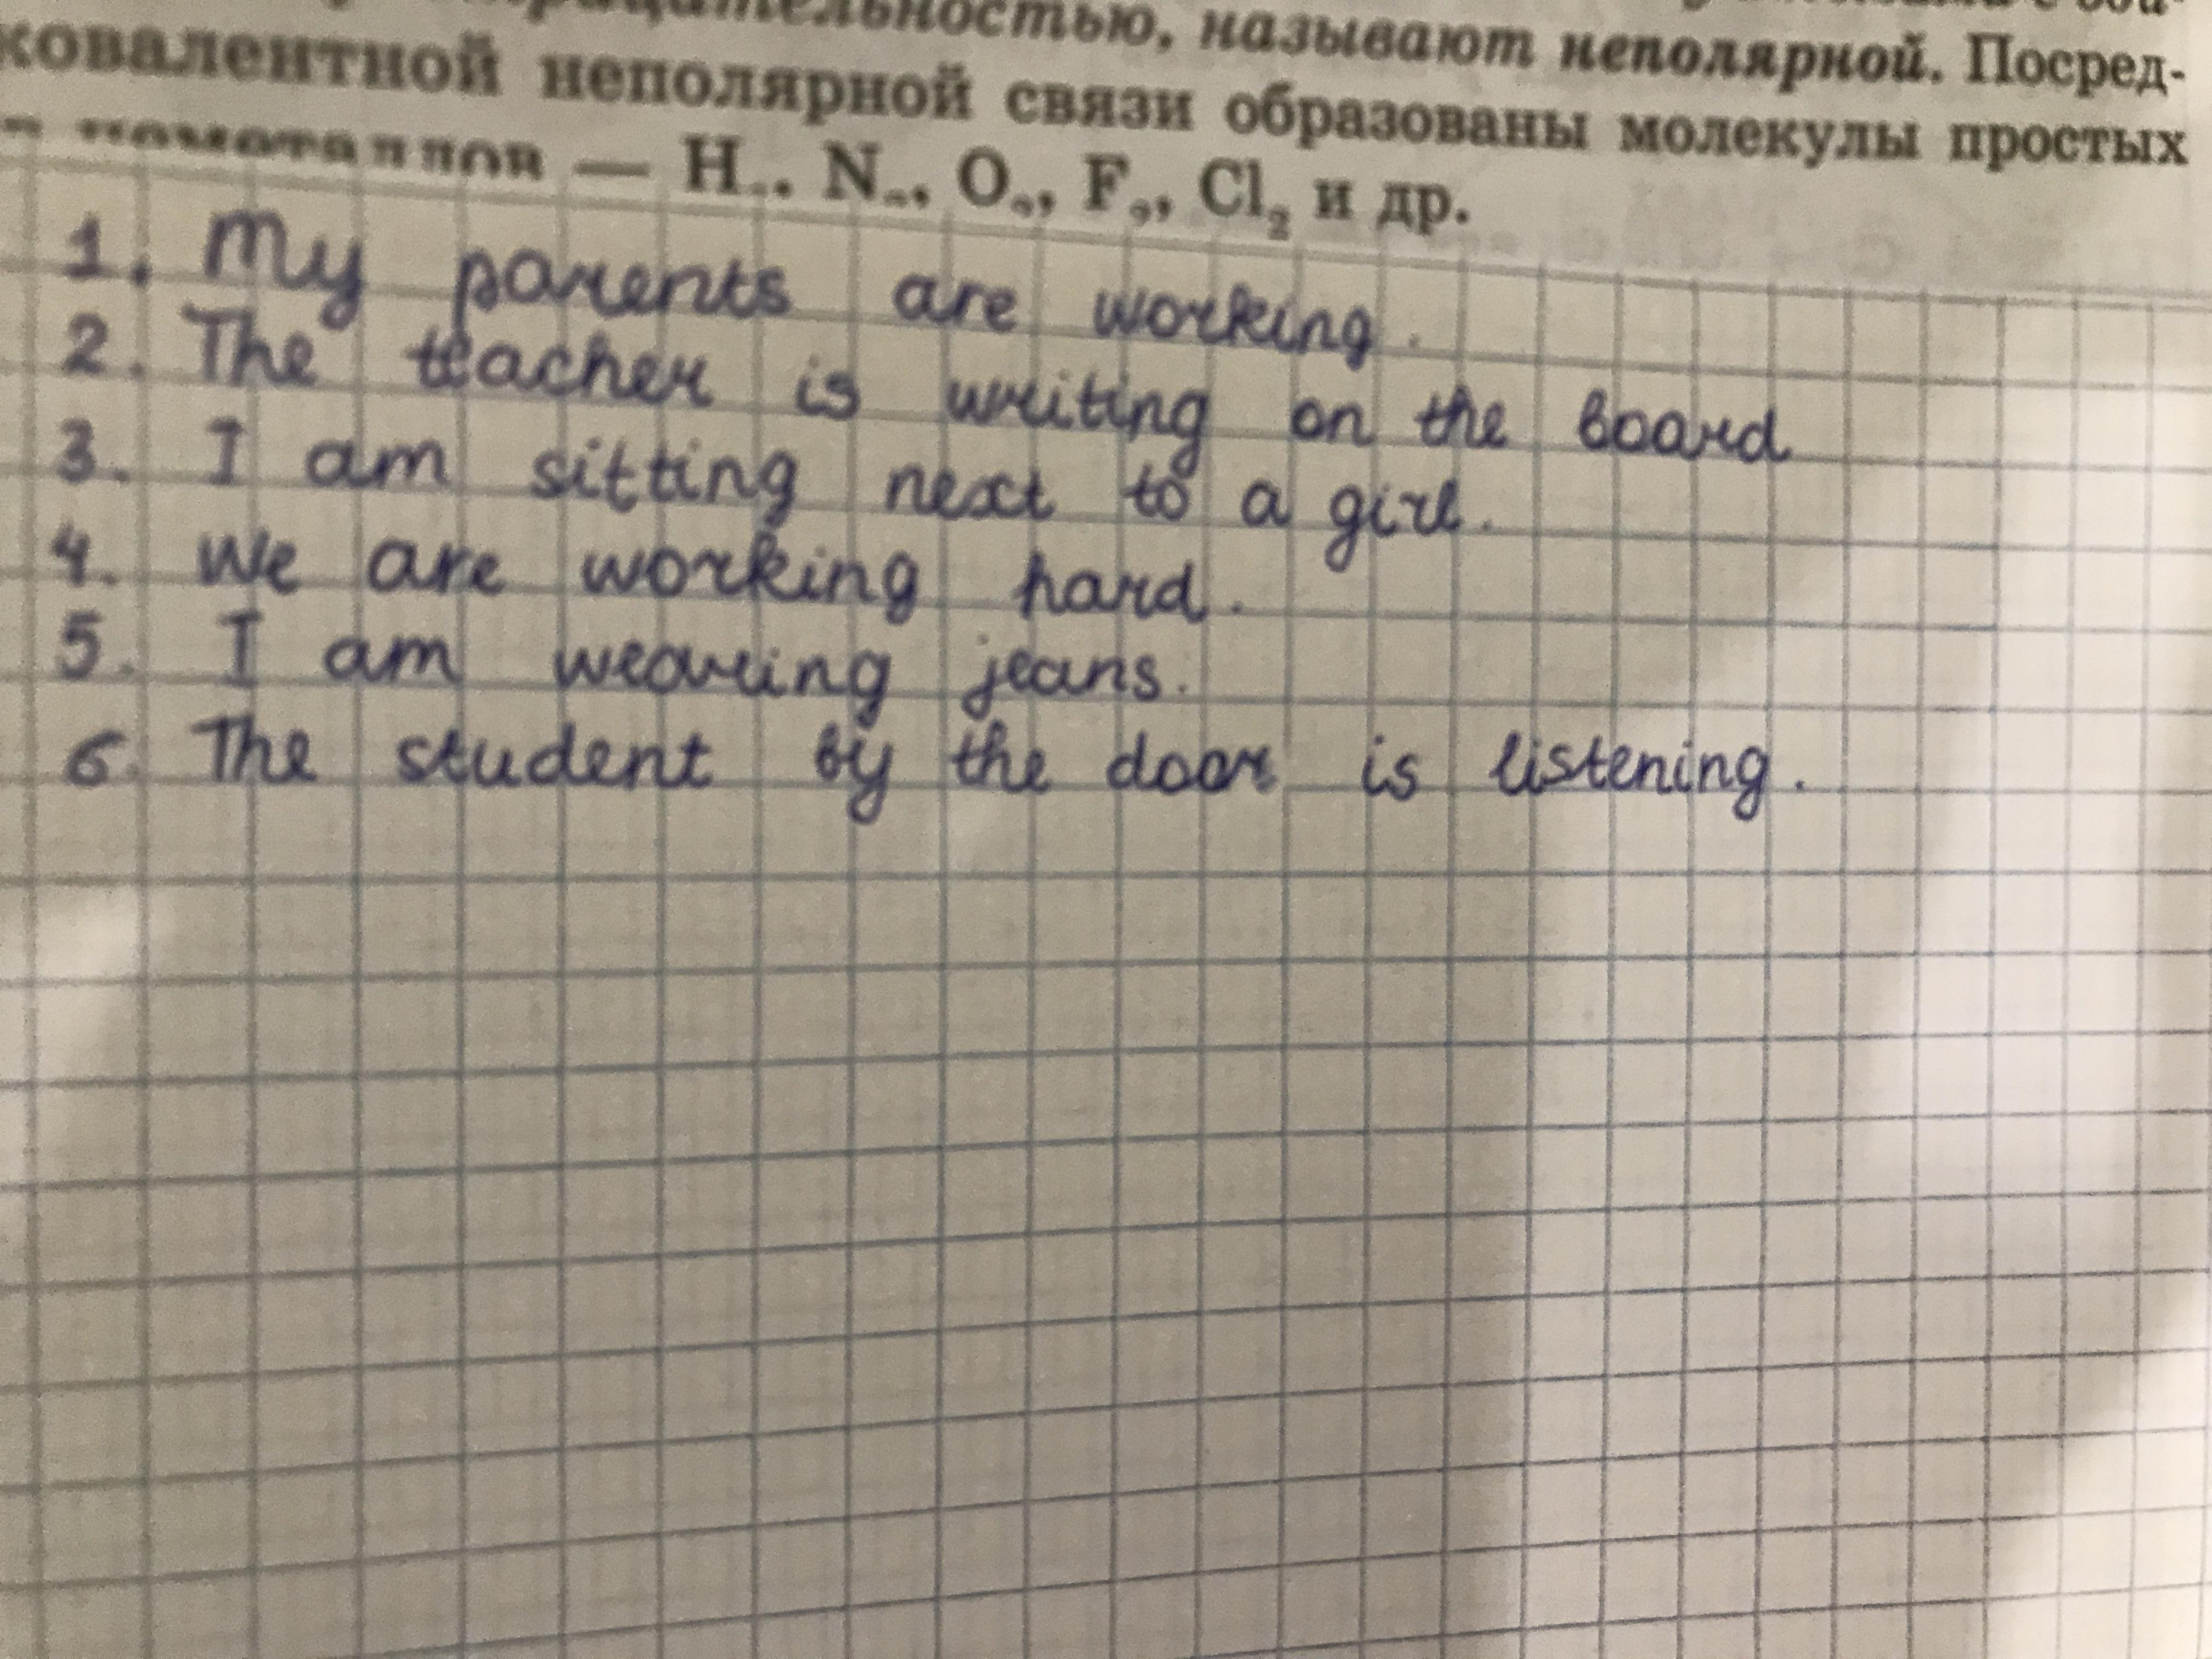 ностью, называют неполярной. Посред-
ковалентной неполярной связи образованы молекулы простых
— H₂, N₂, O₂, F₂, Cl₂ и др.
1. My parents are working.
2. The teacher is writing on the board
3. I am sitting next to a girl.
4. We are working hard.
5. I am wearing jeans.
6. The student by the door is listening.